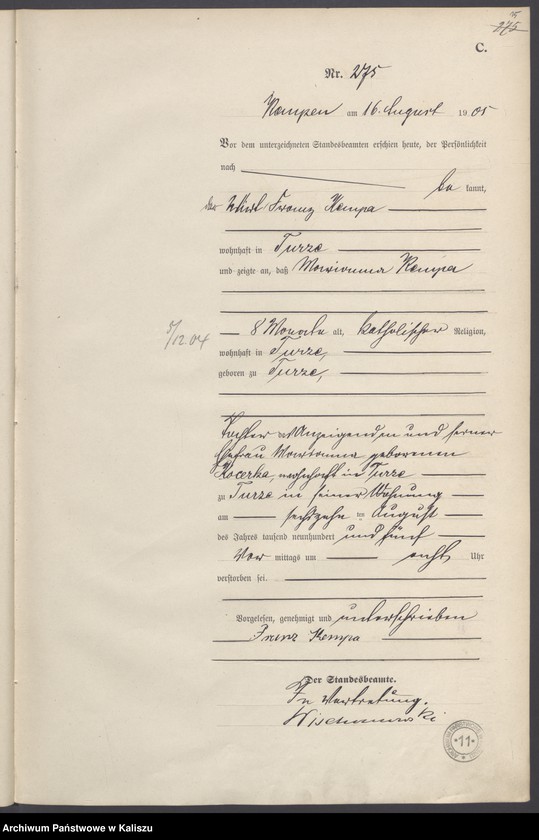 275
C.
Nr. 275
Kempen am 16. August 1905
Vor dem unterzeichneten Standesbeamten erschien heute, der Persönlichkeit
nach
be kannt,
der Wirt Franz Kempa
wohnhaft in Turze
und zeigte an, daß Marianna Kempa
5/12.04
8 Monate alt, katholischer Religion,
wohnhaft in Turze,
geboren zu Turze,
Tochter des Anzeigenden und seiner
Ehefrau Marianna geborenen
Kocerka, wohnhaft in Turze
zu Turze in seiner Wohnung
am sechszehn ten August
des Jahres tausend neunhundert und fünf
Vor mittags um acht Uhr
verstorben sei.
Vorgelesen, genehmigt und unterschrieben
Franz Kempa
Der Standesbeamte.
In Vertretung.
11
Archiwum Państwowe w Kaliszu